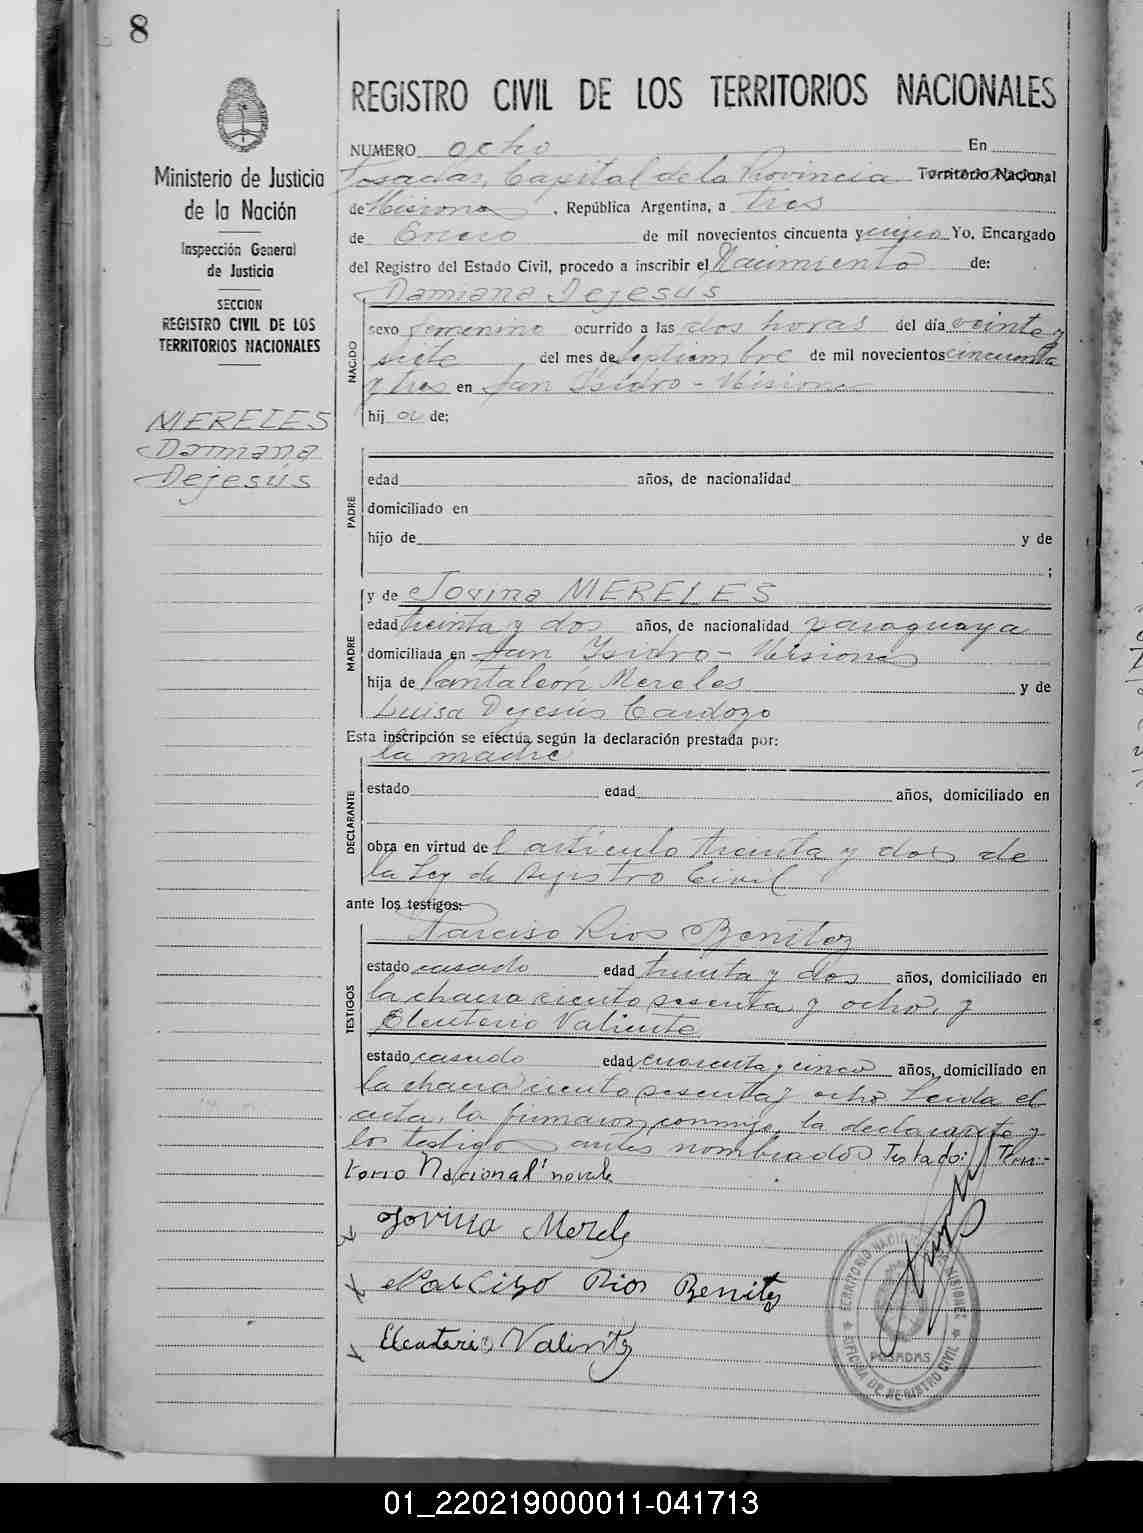 8
REGISTRO CIVIL DE LOS TERRITORIOS NACIONALES
Ministerio de Justicia
de la Nación
Inspección General
de Justicia
SECCION
REGISTRO CIVIL DE LOS
TERRITORIOS NACIONALES
MERELES
Damiana
Dejesús
NUMERO ocho En
Posadas, Capital de la Provincia Territorio Nacional
de Misiones, República Argentina, a tres
de Enero de mil novecientos cincuenta y Yo, Encargado
del Registro del Estado Civil, procedo a inscribir el Nacimiento de:
Damiana Dejesús
NACIDO
sexo femenino ocurrido a las dos horas del día veinte y
siete del mes de Septiembre de mil novecientos cincuenta
y tres en San Isidro - Misiones
hij a de:
PADRE
edad años, de nacionalidad
domiciliado en
hijo de y de
;
MADRE
y de Jovina MERELES
edad treinta y dos años, de nacionalidad paraguaya
domiciliada en San Isidro - Misiones
hija de Pantaleón Mereles y de
Luisa Dejesús Cardozo
Esta inscripción se efectúa según la declaración prestada por:
la madre
DECLARANTE
estado edad años, domiciliado en
obra en virtud del artículo treinta y dos de
la Ley de Registro Civil
ante los testigos:
TESTIGOS
Narciso Rios Benitez
estado casado edad treinta y dos años, domiciliado en
la chacra ciento sesenta y ocho, y
Eleuterio Valiente
estado casado edad cuarenta y cinco años, domiciliado en
la chacra ciento sesenta y ocho. Leída el
acta, la firmaron conmigo, la declarante y
los testigos antes nombrados Testado: "Terri-
torio Nacional" no vale
Jovina Merele
Narciso Rios Benitez
Eleuterio Valientez
TERRITORIO NACIONAL DE MISIONES
POSADAS
OFICINA DE REGISTRO CIVIL
01_220219000011-041713